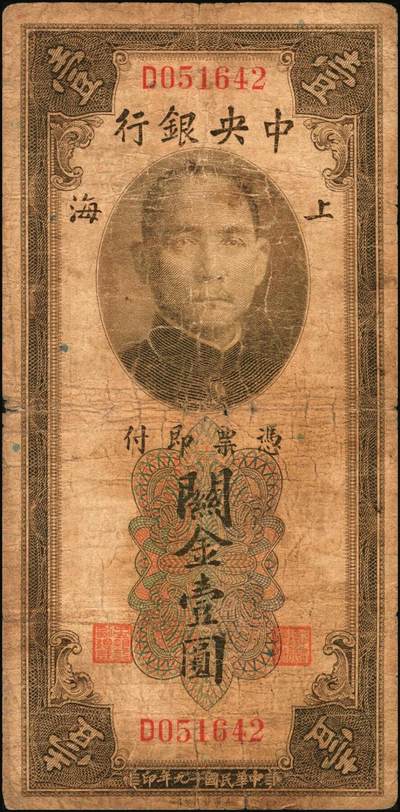 壹 D051642 壹
中央銀行
上海
憑票即付
關金壹圓
D051642
壹 壹
中華民國十九年印